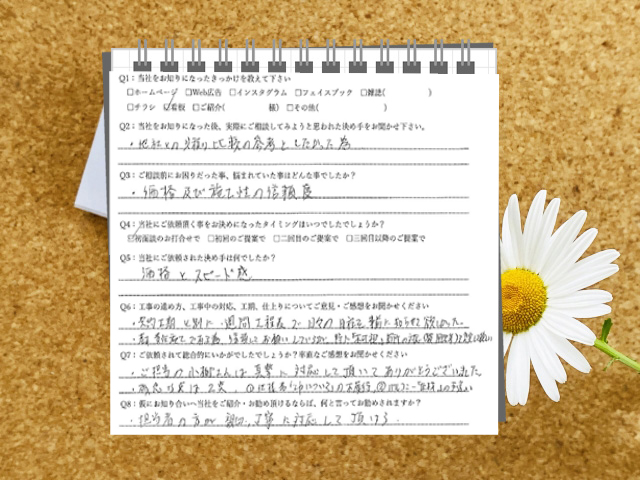 Q1：当社をお知りになったきっかけを教えて下さい
□ホームページ □Web広告 □インスタグラム □フェイスブック □雑誌(　　　)
□チラシ ☑看板 □ご紹介(　　　様) □その他(　　　)
Q2：当社をお知りになった後、実際にご相談してみようと思われた決め手をお聞かせ下さい。
・他社との見積り比較の参考としたかった為
Q3：ご相談前にお困りだった事、悩まれていた事はどんな事でしたか？
・価格及び施工性の信頼度
Q4：当社にご依頼頂く事をお決めになったタイミングはいつでしたでしょうか？
☑初面談のお打合せで □初回のご提案で □二回目のご提案で □三回目以降のご提案で
Q5：当社にご依頼された決め手は何でしたか？
価格とスピード感
Q6：工事の進め方、工事中の対応、工期、仕上りについてご意見・ご感想をお聞かせください
・契約工期と別に週間工程表で日々の日程を
Q7：ご依頼されて総合的にいかがでしたでしょうか？率直なご感想をお聞かせください
・ご担当の小柳さんは真摯に対応して頂いてありがとうございました
・残念な点は2点、
Q8：仮にお知り合いへ当社をご紹介・お勧め頂けるならば、何と言ってお勧めされますか？
・担当者の方が親切、丁寧に対応して頂ける。